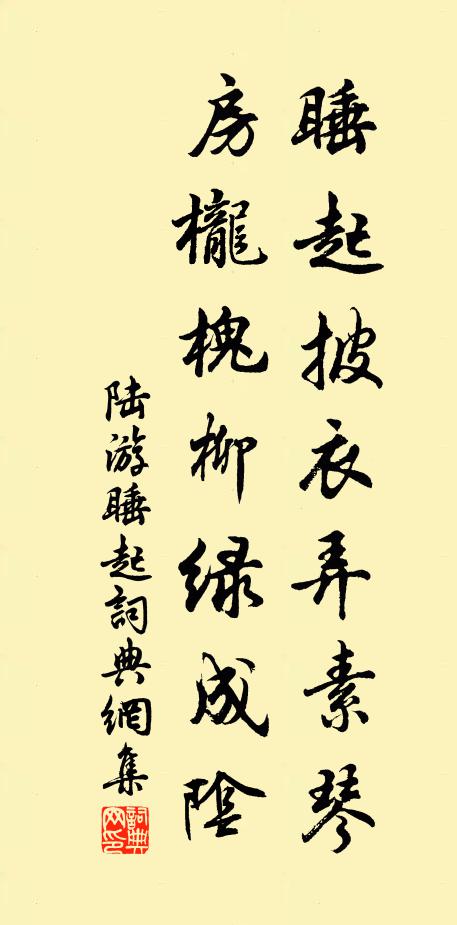 睡起披衣弄素琴
房櫳槐柳绿成陰
陆游睡起詞典網集
詞典网印